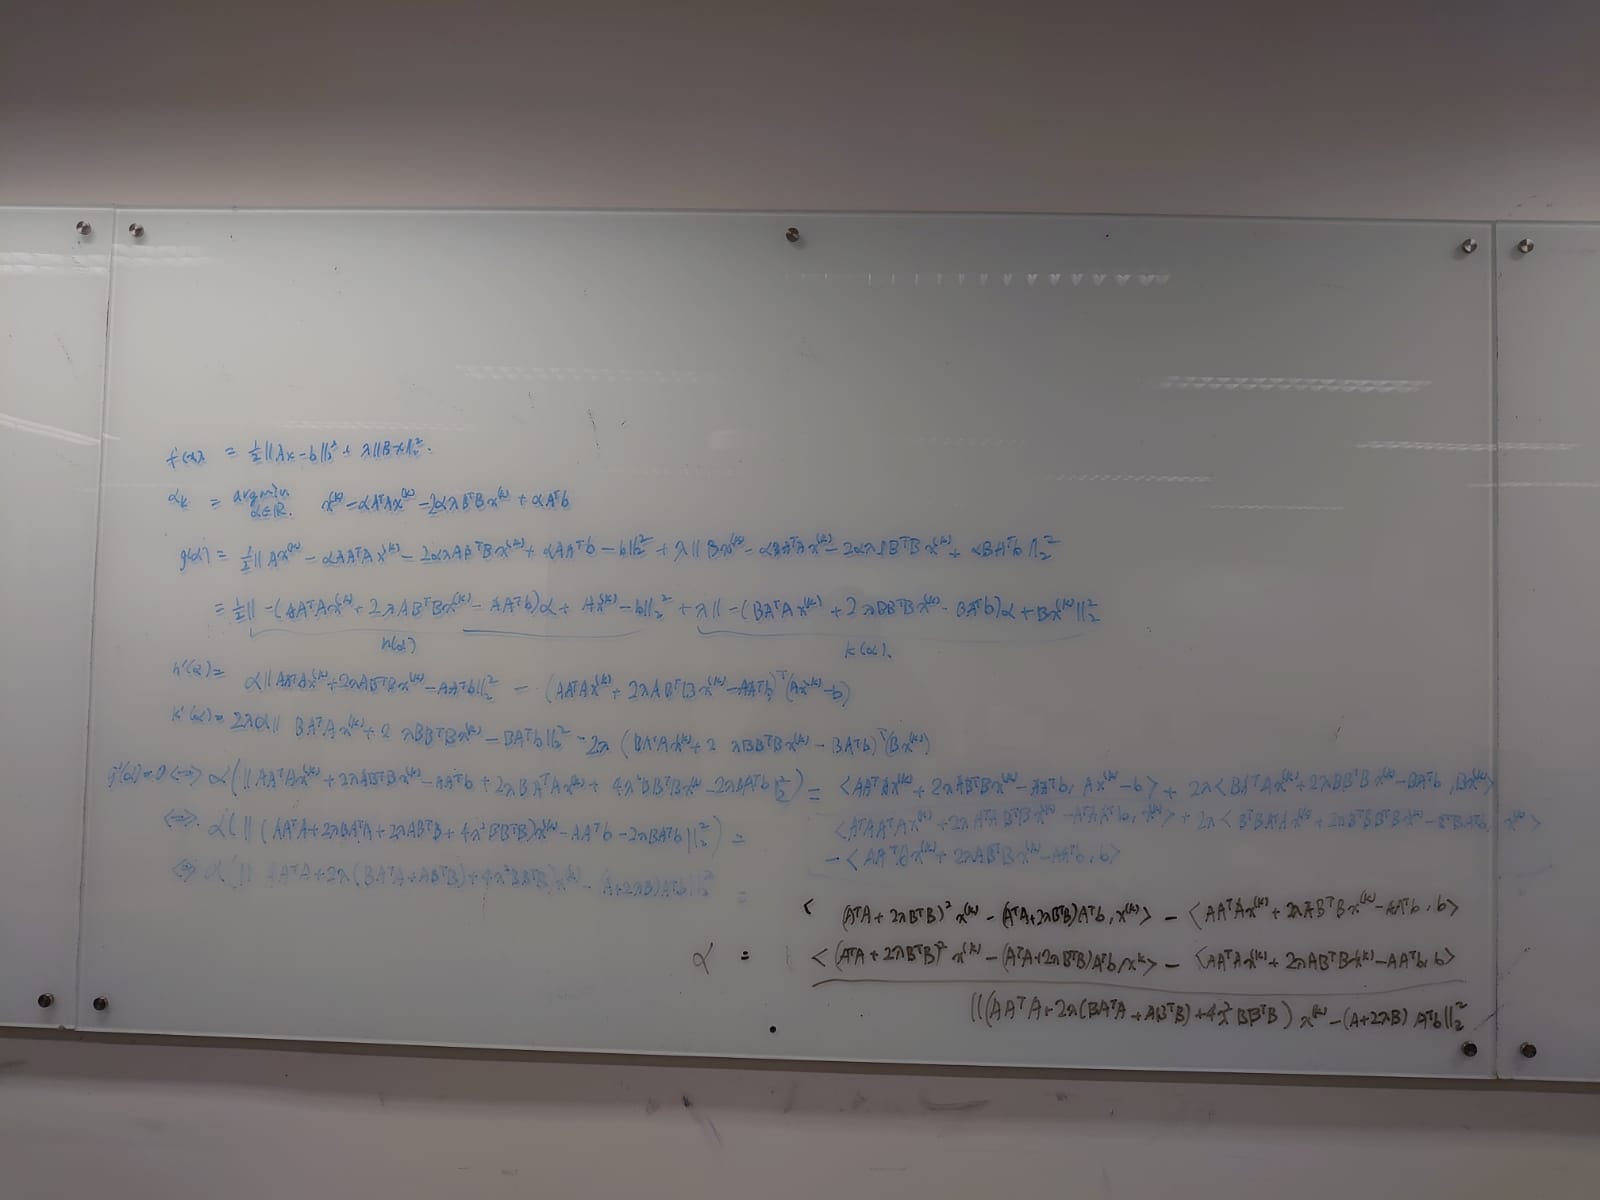 f(x) = ½||Ax-b||₂² + λ||Bx||₂².
α_k = argmin_{α∈ℝ.} x^(k) - αAᵀAx^(k) - 2αλBᵀBx^(k) + αAᵀb
g(α) = ½||Ax^(k) - αAAᵀAx^(k) - 2αλABᵀBx^(k) + αAAᵀb - b||₂² + λ||Bx^(k) - αBAᵀAx^(k) - 2αλBBᵀBx^(k) + αBAᵀb||₂²
= ½||-(AAᵀAx^(k) + 2λABᵀBx^(k) - AAᵀb)α + Ax^(k) - b||₂² + λ||-(BAᵀAx^(k) + 2λBBᵀBx^(k) - BAᵀb)α + Bx^(k)||₂²
h(α) k(α).
h'(α) = α||AAᵀAx^(k) + 2λABᵀBx^(k) - AAᵀb||₂² - (AAᵀAx^(k) + 2λABᵀBx^(k) - AAᵀb)ᵀ(Ax^(k) - b)
k'(α) = 2λα||BAᵀAx^(k) + 2λBBᵀBx^(k) - BAᵀb||₂² - 2λ(BAᵀAx^(k) + 2λBBᵀBx^(k) - BAᵀb)ᵀ(Bx^(k))
g'(α)=0 ⟺ α(||AAᵀAx^(k) + 2λABᵀBx^(k) - AAᵀb + 2λBAᵀAx^(k) + 4λ²BBᵀBx^(k) - 2λBAᵀb||₂²) = <AAᵀAx^(k) + 2λABᵀBx^(k) - AAᵀb, Ax^(k) - b> + 2λ<BAᵀAx^(k) + 2λBBᵀBx^(k) - BAᵀb, Bx^(k)>
⟺ α(||(AAᵀA + 2λBAᵀA + 2λABᵀB + 4λ²BBᵀB)x^(k) - AAᵀb - 2λBAᵀb||₂²) = <AᵀAAᵀAx^(k) + 2λAᵀABᵀBx^(k) - AᵀAAᵀb, x^(k)> + 2λ<BᵀBAᵀAx^(k) + 2λBᵀBBᵀBx^(k) - BᵀBAᵀb, x^(k)>
- <AAᵀAx^(k) + 2λABᵀBx^(k) - AAᵀb, b>
⟺ α(||AAᵀA + 2λ(BAᵀA + ABᵀB) + 4λ²BBᵀB)x^(k) - (A+2λB)Aᵀb||₂² =
<(AᵀA + 2λBᵀB)² x^(k) - (AᵀA + 2λBᵀB)Aᵀb, x^(k)> - <AAᵀAx^(k) + 2λABᵀBx^(k) - AAᵀb, b>
α = <(AᵀA + 2λBᵀB)² x^(k) - (AᵀA + 2λBᵀB)Aᵀb, x^k> - <AAᵀAx^(k) + 2λABᵀBx^(k) - AAᵀb, b>
||(AAᵀA + 2λ(BAᵀA + ABᵀB) + 4λ²BBᵀB)x^(k) - (A+2λB)Aᵀb||₂²